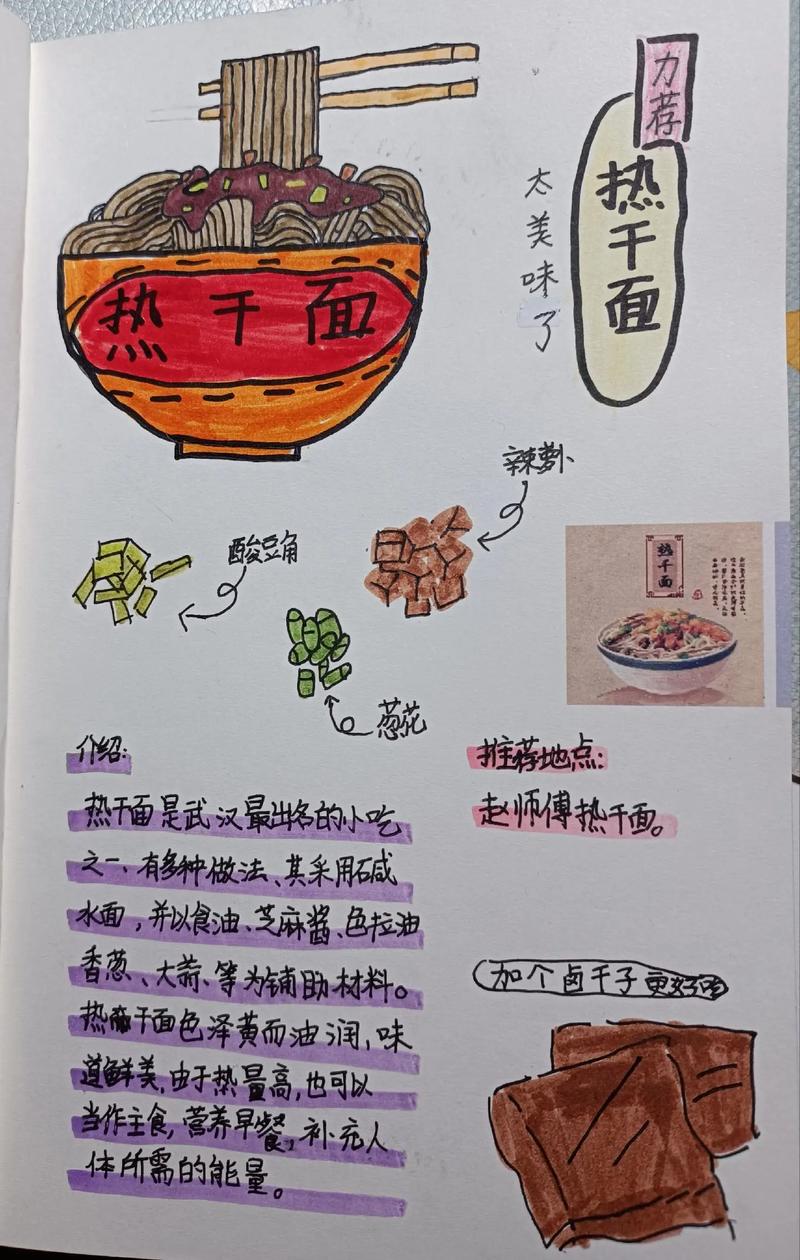 力荐
热干面
太美味了
热干面
辣萝卜
酸豆角
葱花
热干面
介绍:
热干面是武汉最出名的小吃
之一、有多种做法、其采用碱
水面，并以食油、芝麻酱、色拉油
香葱、大蒜、等为铺助材料。
热干面色泽黄而油润,味
道鲜美,由于热量高,也可以
当作主食,营养早餐,补充人
体所需的能量。
推荐地点:
赵师傅热干面。
加个卤干子更好吃